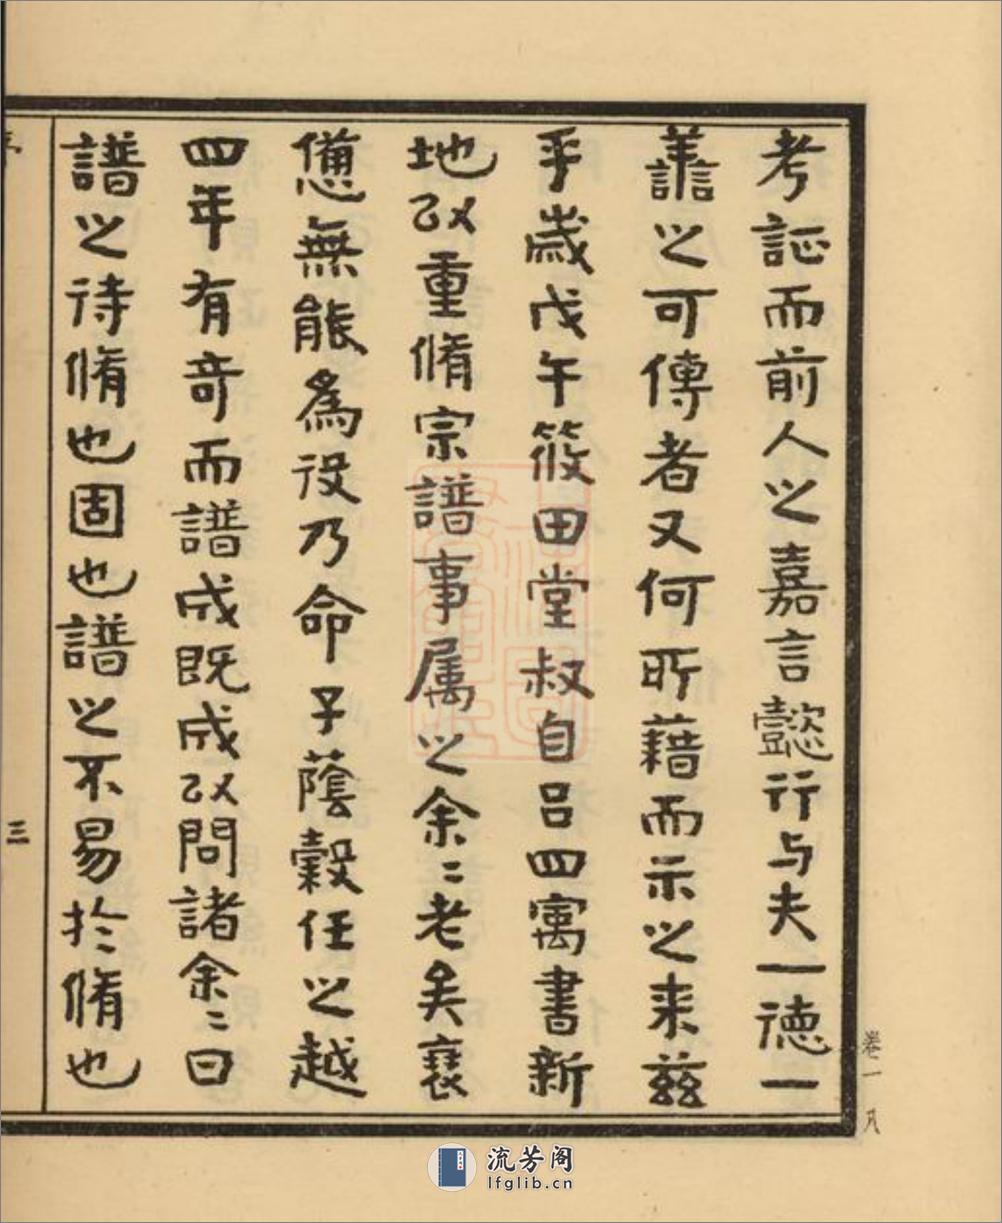 考証而前人之嘉言懿行与夫一德一
譱之可傳者又何所藉而示之来兹
乎歲戊午筱田堂叔自吕四寓書新
地以重脩宗譜事属之余二老矣衰
憊無能為役乃命子蔭穀任之越
四年有奇而譜成既成以問諸余二曰
譜之待脩也固也譜之不易於脩也
三
卷一
流芳阁
lfglib.cn